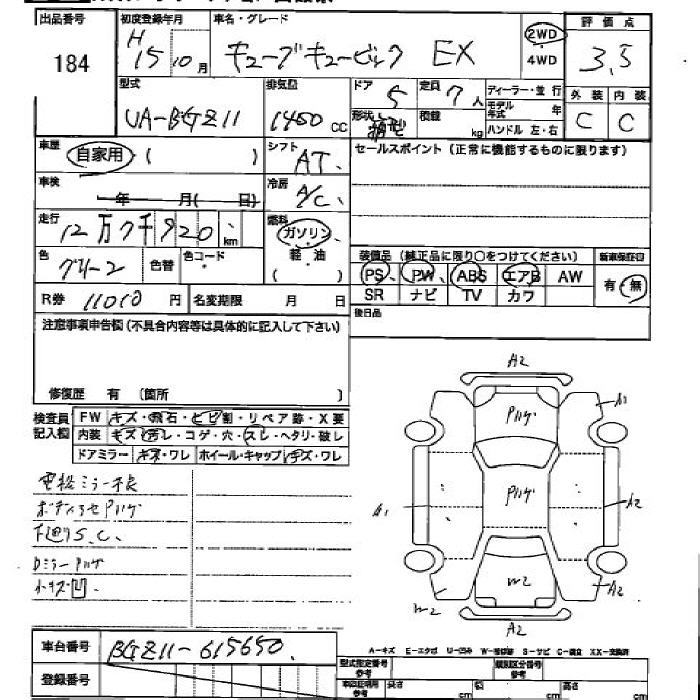 出品番号 初度登録年月 車名・グレード 2WD 4WD 評価点
184 H 15 10月 キューブキュービック EX 3.5
型式 排気量 ドア 定員 ディーラー・並行 外装 内装
UA-BGZ11 1400 CC 5 7人 モデル年式 年 C C
形状 箱型 積載 kg ハンドル 左・右
車歴 自家用 ( ) シフト AT セールスポイント (正常に機能するものに限ります)
車検 年 月( 日) 冷房 A/C
走行 12万7千920 km 燃料 ガソリン・軽油 ( )
色 グリーン 色替 色コード 装備品 (純正品に限り○をつけてください) 新車保証書
PS PW ABS エアB AW 有・無
SR ナビ TV カワ
R券 11010円 名変期限 月 日 後日品
注意事項申告欄 (不具合内容等は具体的に記入して下さい)
修復歴 有 (箇所 )
検査員記入欄 FW キズ・飛石・ヒビ割・リペア跡・X要
内装 キズ・汚レ・コゲ・穴・スレ・ヘタリ・破レ
ドアミラー キズ・ワレ ホイール・キャップ キズ・ワレ
電格ミラー不良
S.C.
Dミラー
小キズ凹
A2
A1
A1
A2
W2
W2
A2
A2
車台番号 BGZ11-615650
登録番号
A-キズ E-エクボ U-凹み W-補修跡 S-サビ C-腐食 XX-交換済
型式指定番号 参考 類別区分番号 参考
長さ cm 幅 cm 高さ cm